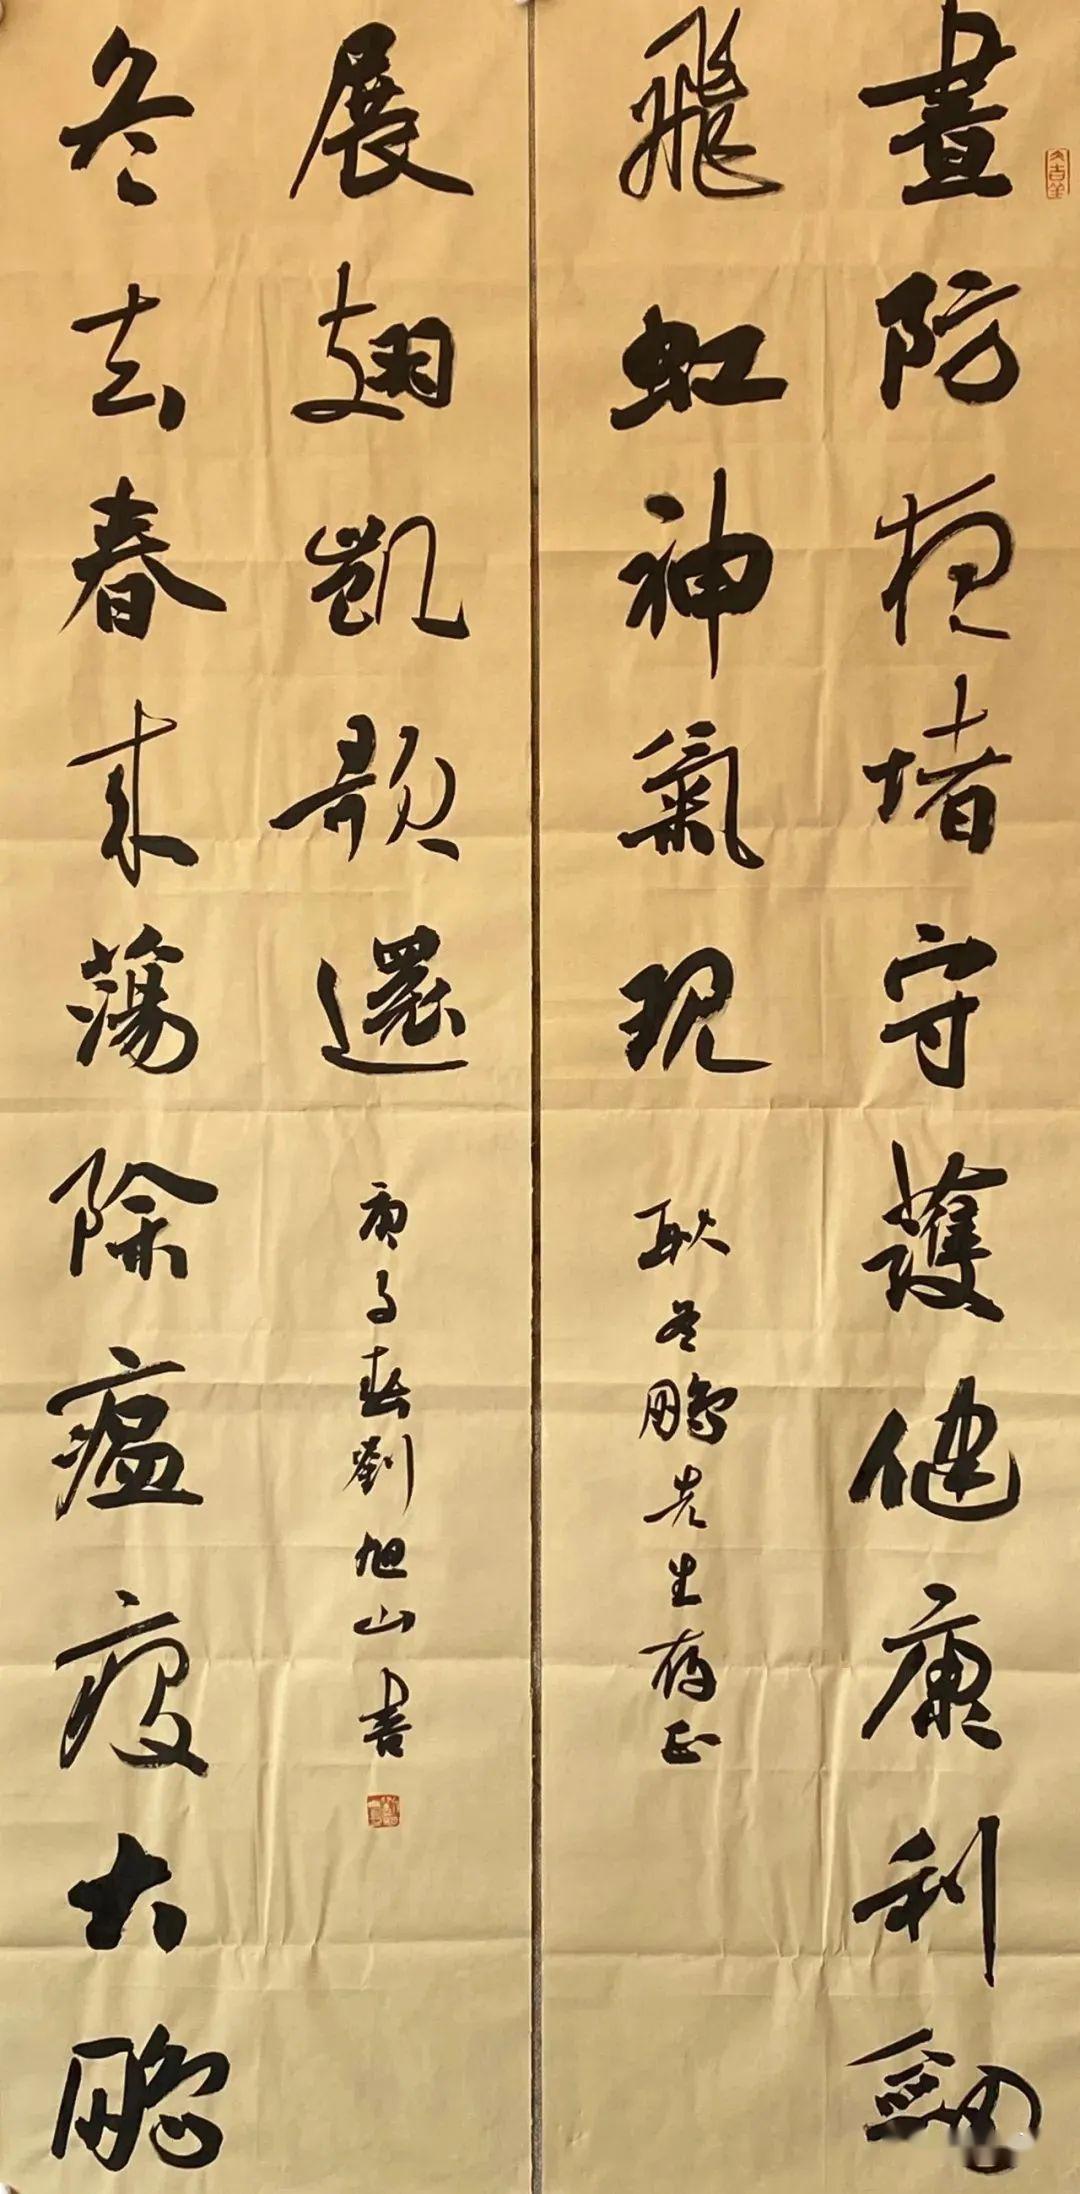 晝防夜堵守護健康利劍
飛虹神氣現
耿冬鵬先生存正
冬去春來蕩除瘟疫大鵬
展翅凱歌還
庚子春劉旭山書